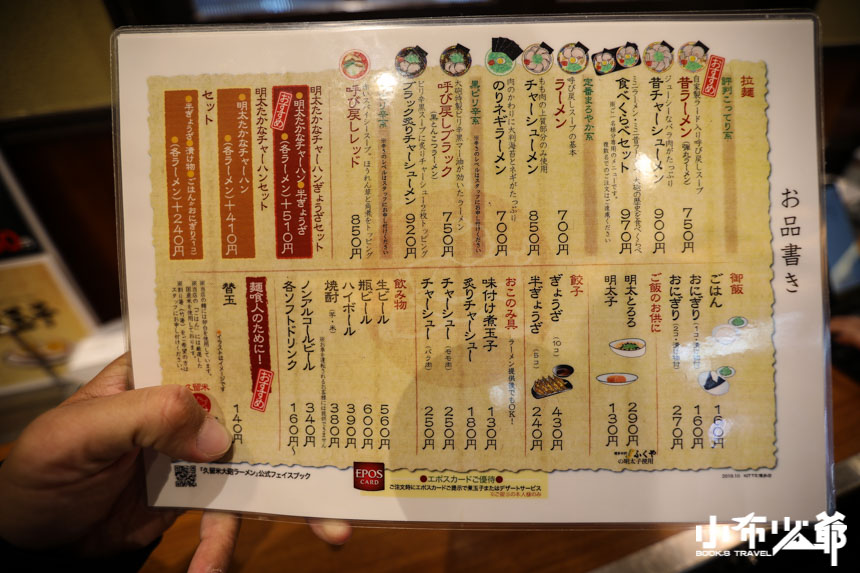 お品書き
拉麺
評判こってり系
おすすめ
昔ラーメン
750円
自家製ラード入り呼び戻しスープ
昔チャーシューメン
900円
ジューシーなバラ肉がたっぷり
食べくらべセット
970円
定番まろやか系
ラーメン
700円
呼び戻しスープの基本
チャーシューメン
850円
もも肉の上質部分のみ使用
のりネギラーメン
700円
肉のかわりに大判海苔とネギがたっぷり
黒ピリ辛系
呼び戻しブラック
750円
ブラック炙りチャーシューメン
920円
呼び戻しレッド
850円
明太たかなチャーハンぎょうざセット
おすすめ
明太たかなチャーハン●半ぎょうざ
(各ラーメン)+510円
明太たかなチャーハンセット
●明太たかなチャーハン
●(各ラーメン)+410円
セット
●半ぎょうざ●漬け物●ごはんorおにぎり(1コ)
●(各ラーメン)+240円
御飯
ごはん
160円
おにぎり
160円
おにぎり(2コ・漬物付)
270円
ご飯のお供に
明太とろろ
290円
明太子
130円
ふくや
の明太子使用
餃子
ぎょうざ(10コ)
430円
半ぎょうざ(5コ)
240円
おこのみ具
ラーメン提供後でもOK!
味付け煮玉子
130円
炙りチャーシュー
180円
チャーシュー(モモ肉)
250円
チャーシュー(バラ肉)
250円
飲み物
生ビール
560円
瓶ビール
600円
ハイボール
390円
焼酎(芋・米)
380円
ノンアルコールビール
340円
各ソフトドリンク
160円〜
麺喰人のために!
おすすめ
替玉
140円
※イラストはイメージです
久留米
「久留米大砲ラーメン」公式フェイスブック
EPOS
CARD
●エポスカードご優待●
ご注文時にエポスカードご提示で煮玉子またはデザートサービス
※ご提示の本人様のみ
小布少爺
BOOK.S TRAVEL